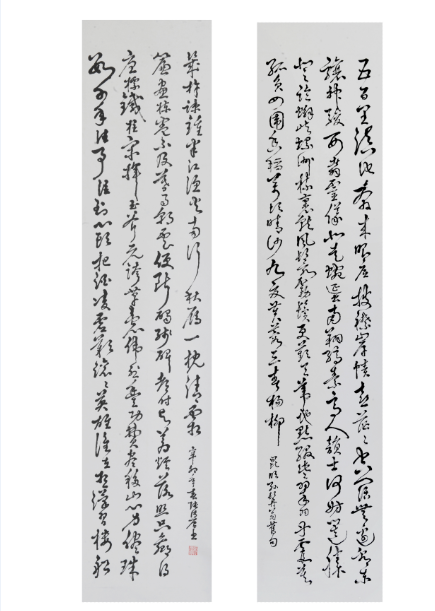 五百里滇池奔来眼底披襟岸帻喜茫茫空阔无边看东
骧神骏西翥灵仪北走蜿蜒南翔缟素高人韵士何妨选胜
登临趁蟹屿螺洲梳裹就风鬟雾鬓更苹天苇地点缀些翠羽丹霞莫
孤负四围香稻万顷晴沙九夏芙蓉三春杨柳
昆明孙髯翁旧句
数千年往事注到心头把酒凌虚叹滚滚英雄谁在想汉习楼船
唐标铁柱宋挥玉斧元跨革囊伟烈丰功费尽移山心力尽珠
帘画栋卷不及暮雨朝云便断碣残碑都付与苍烟落照只赢得
几杵疏钟半江渔火两行秋雁一枕清霜
辛卯年